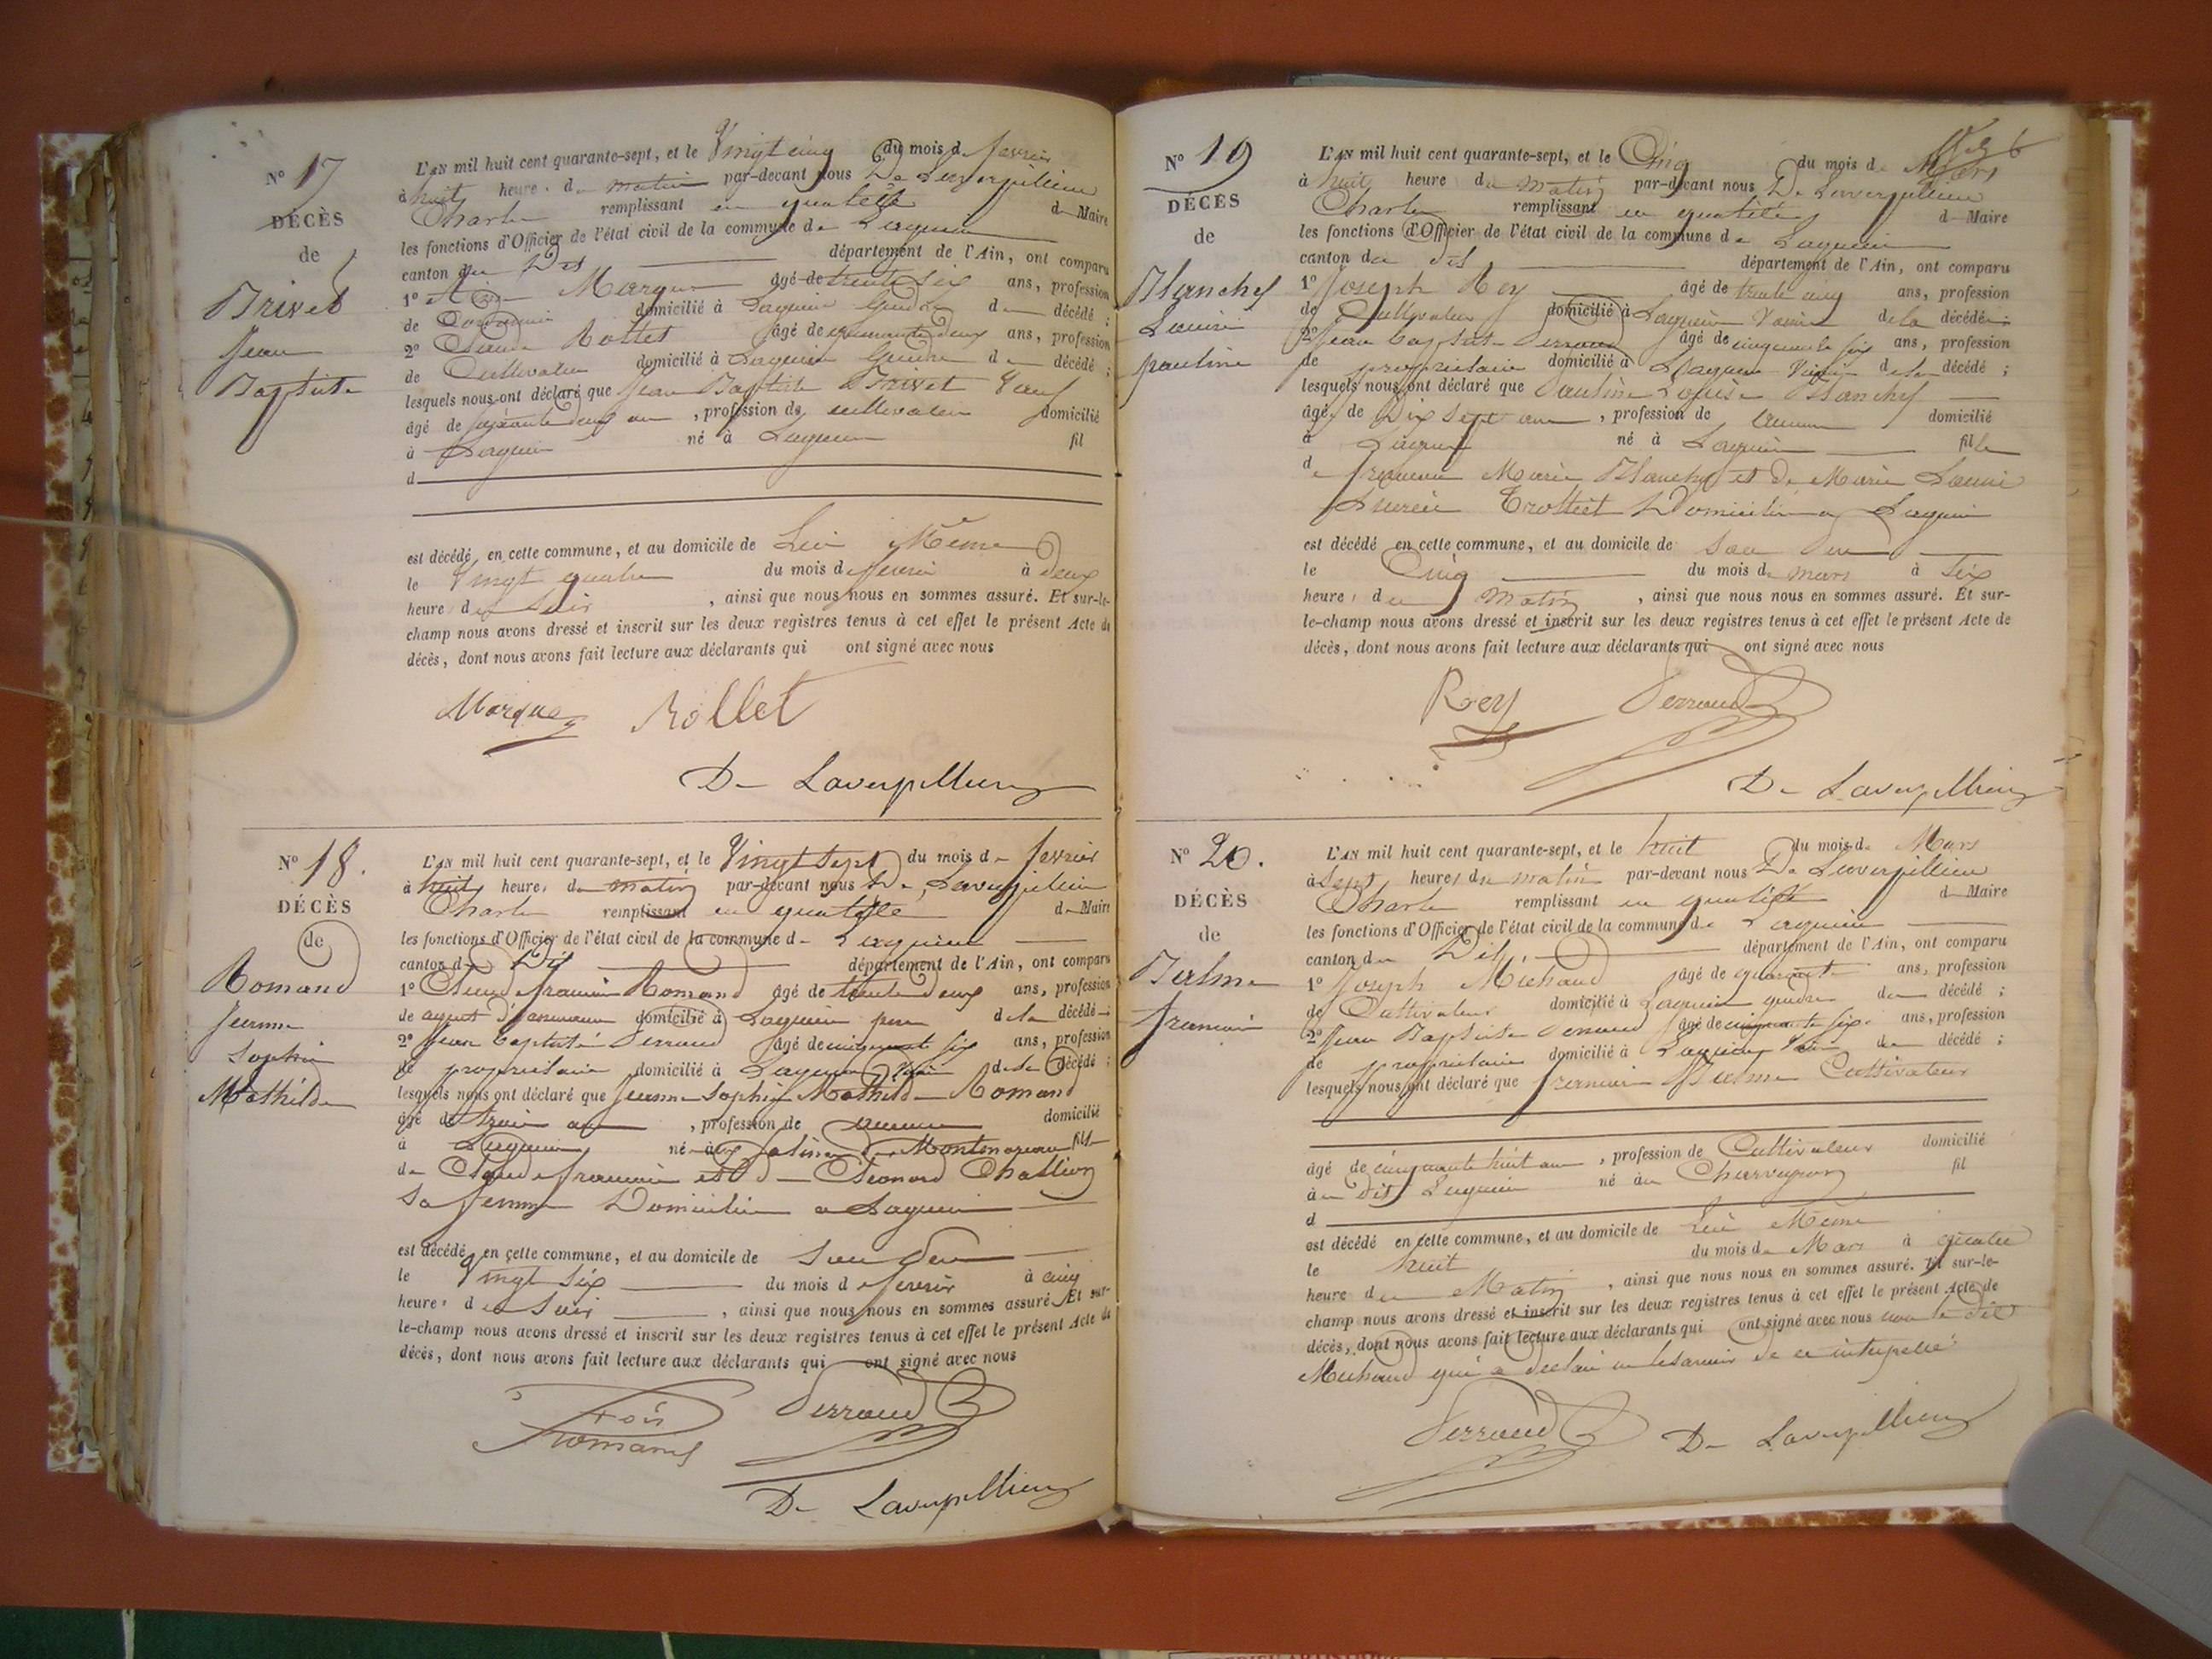 N° 17
DÉCÈS
de
Brivet
Jean
Baptiste
L'AN mil huit cent quarante-sept, et le Vingt cinq du mois de fevrier
à huit heure. du matin par-devant nous De Laverpilliere
Charles remplissant en qualité de Maire
les fonctions d'Officier de l'état civil de la commune de Lagnieu
canton du dit département de l'Ain, ont comparu
1° Marque âgé de trente six ans, profession
de domicilié à Lagnieu Gendre du décédé ;
2° Claude Rollet âgé de deux ans, profession
de Cultivateur domicilié à Lagnieu Gendre du décédé ;
lesquels nous ont déclaré que Jean Baptiste Brivet Veuf
âgé de soixante deux ans , profession de cultivateur domicilié
à Lagnieu né à Lagnieu fil
d
est décédé en cette commune, et au domicile de Lui Même
le Vingt quatre du mois de fevrier à deux
heure du Soir , ainsi que nous nous en sommes assuré. Et sur-le-
champ nous avons dressé et inscrit sur les deux registres tenus à cet effet le présent Acte de
décès, dont nous avons fait lecture aux déclarants qui ont signé avec nous
Marque Rollet
De Laverpilliere
N° 18.
DÉCÈS
de
Romand
Jeanne
Sophie
Mathilde
L'AN mil huit cent quarante-sept, et le Vingt Sept du mois de fevrier
à huit heure. du matin par-devant nous De Laverpilliere
Charles remplissant en qualité de Maire
les fonctions d'Officier de l'état civil de la commune de Lagnieu
canton du Dit département de l'Ain, ont comparu
1° Claude francois Romand âgé de trente deux ans, profession
de agent d'assurance domicilié à Lagnieu pere de la décédée
2° Jean Baptiste Perraud âgé de cinquante six ans, profession
de proprietaire domicilié à Lagnieu Voisin de la décédé ;
lesquels nous ont déclaré que Jeanne Sophie Mathilde Romand
âgé de trois ans , profession de aucune domicilié
à Lagnieu né à Montmerle fille
de Claude francois et de Chatlion
Sa femme Domicilies a Lagnieu
est décédé en cette commune, et au domicile de Son Pere
le Vingt Six du mois de fevrier à cinq
heure. du Soir , ainsi que nous nous en sommes assuré. Et sur-
le-champ nous avons dressé et inscrit sur les deux registres tenus à cet effet le présent Acte de
décès, dont nous avons fait lecture aux déclarants qui ont signé avec nous
Fois Romand Perraud
De Laverpilliere
N° 19
DÉCÈS
de
Blanchy
Louise
pauline
L'AN mil huit cent quarante-sept, et le Cinq du mois de Mars
à huit heure du matin par-devant nous De Laverpilliere
Charles remplissant en qualité de Maire
les fonctions d'Officier de l'état civil de la commune de Lagnieu
canton du dit département de l'Ain, ont comparu
1° Joseph Rey âgé de trente cinq ans, profession
de Cultivateur domicilié à Lagnieu Voisin de la décédée ;
2° Jean Baptiste Perraud âgé de cinquante six ans, profession
de proprietaire domicilié à Lagnieu Voisin de la décédé ;
lesquels nous ont déclaré que Pauline Louise Blanchy
âgé de Dix Sept ans , profession de aucune domicilié
à Lagnieu né à Lagnieu fille
de francois Marie Blanchy et de Marie Louise
Trottiet Domicilies a Lagnieu
est décédé en cette commune, et au domicile de Son Pere
le Cinq du mois de mars à Six
heure. du Matin , ainsi que nous nous en sommes assuré. Et sur-
le-champ nous avons dressé et inscrit sur les deux registres tenus à cet effet le présent Acte de
décès, dont nous avons fait lecture aux déclarants qui ont signé avec nous
Rey Perraud
De Laverpilliere
N° 20.
DÉCÈS
de
Balme
francois
L'AN mil huit cent quarante-sept, et le huit du mois de Mars
à Sept heure du matin par-devant nous De Laverpilliere
Charles remplissant en qualité de Maire
les fonctions d'Officier de l'état civil de la commune de Lagnieu
canton du Dit département de l'Ain, ont comparu
1° Joseph Michaud âgé de quarante ans, profession
de Cultivateur domicilié à Lagnieu gendre du décédé ;
2° Jean Baptiste Perraud âgé de cinquante six ans, profession
de proprietaire domicilié à Lagnieu Voisin du décédé ;
lesquels nous ont déclaré que francois Balme Cultivateur
âgé de cinquante huit ans , profession de Cultivateur domicilié
à u dit Lagnieu né à fil
d
est décédé en cette commune, et au domicile de Lui Même
le huit du mois de Mars à quatre
heure du Matin , ainsi que nous nous en sommes assuré. Et sur-le-
champ nous avons dressé et inscrit sur les deux registres tenus à cet effet le présent Acte de
décès, dont nous avons fait lecture aux déclarants qui ont signé avec nous non le dit
Michaud qui a declaré ne le savoir de ce interpellé
Perraud De Laverpilliere